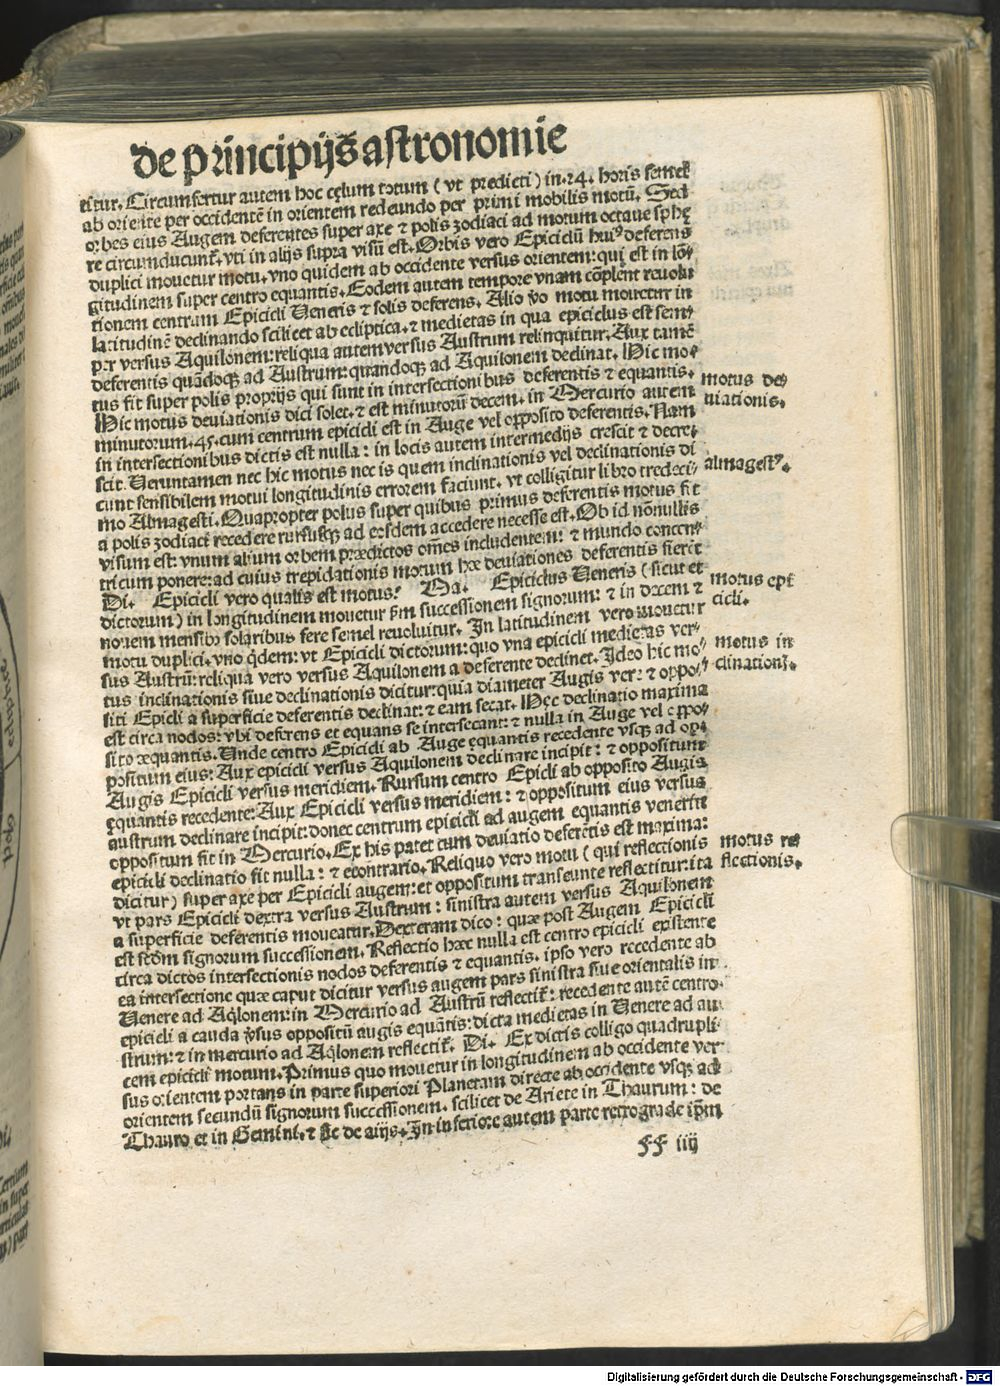 de principijs astronomie
titur. Circumfertur autem hoc cęlum totum (vt predicti) in .24. horis semel
ab oriente per occidentē in orientem redeundo per primi mobilis motū. Sed
orbes eius Augem deferentes super axe ⁊ polis zodiaci ad motum octaue sphę
re circumducunt̄. vti in alijs supra visū est. Orbis vero Epiciclū huiꝰ deferens
duplici mouetur motu. vno quidem ab occidente versus orientem: qui est in lō⸗
gitudinem super centro equantis. Eodem autem tempore vnam cōplent reuolu
tionem centrum Epicicli Veneris ⁊ solis deferens. Alio v̄o motu mouetur in
latitudinē declinando scilicet ab ecliptica. ⁊ medietas in qua epiciclus est sem⸗
per versus Aquilonem: reliqua autem versus Austrum relinquitur. Aux tamē
deferentis quādoqꝫ ad Austrum: quandoqꝫ ad Aquilonem declinat. Hic mo⸗
tus fit super polis proprijs qui sunt in intersectionibus deferentis ⁊ equantis.
Hic motus deuiationis dici solet. ⁊ est minutorū decem. in Mercurio autem
minutorum .45. cum centrum epicicli est in Auge vel opposito deferentis. Nam
in intersectionibus dictis est nulla: in locis autem intermedijs crescit ⁊ decre⸗
scit. Veruntamen nec hic motus nec is quem inclinationis vel declinationis di
cunt sensibilem motui longitudinis errorem faciunt. vt colligitur libro tredeci⸗
mo Almagesti. Quapropter polus super quibus primus deferentis motus fit
a polis zodiaci recedere rursusqꝫ ad eosdem accedere necesse est. Ob id nōnullis
visum est: vnum alium orbem prædictos om̄es includentem: ⁊ mundo concen⸗
tricum ponere: ad cuius trepidationis motum hæ deuiationes deferentis fierēt
Di. Epicicli vero qualis est motus? Ma. Epiciclus Veneris (sicut et
dictorum) in longitudinem mouetur s̄m successionem signorum: ⁊ in decem ⁊
nouem mensibꝰ solaribus fere semel reuoluitur. In latitudinem vero mouetur
motu duplici. vno q̇dem: vt Epicicli dictorum: quo vna epicicli medietas ver⸗
sus Austrū: reliqua vero versus Aquilonem a deferente declinet. Ideo hic mo⸗
tus inclinationis siue declinationis dicitur: quia diameter Augis verę ⁊ oppo⸗
siti Epicicli a superficie deferentis declinat: ⁊ eam secat. Hęc declinatio maxima
est circa nodos: vbi deferens et equans se intersecant: ⁊ nulla in Auge vel oppo⸗
sito æquantis. Unde centro Epicicli ab Auge ęquantis recedente vsqꝫ ad op⸗
positum eius: Aux epicicli versus Aquilonem declinare incipit: ⁊ oppositum
Augis Epicicli versus meridiem. Rursum centro Epicicli ab opposito Augis
ęquantis recedente: Aux Epicicli versus meridiem: ⁊ oppositum eius versus
austrum declinare incipit: donec centrum epicicli ad augem equantis venerit
oppositum fit in Mercurio. Ex his patet cum deuiatio deferētis est maxima:
epicicli declinatio fit nulla: ⁊ econtrario. Reliquo vero motu (qui reflectionis
dicitur) super axe per Epicicli augem: et oppositum transeunte reflectitur: ita
vt pars Epicicli dextra versus Austrum: sinistra autem versus Aquilonem
a superficie deferentis moueatur. Dexteram dico: quæ post Augem Epicicli
est secdm signorum successionem. Reflectio hæc nulla est centro epicicli existente
circa dictos intersectionis nodos deferentis ⁊ equantis. ipso vero recedente ab
ea intersectione quæ caput dicitur versus augem pars sinistra siue orientalis in
Venere ad Aq̇lonem: in Mercurio ad Austrū reflectit̄: recedente autē centro
epicicli a cauda v̄sus oppositū augis equātis: dicta medietas in Venere ad au
strum: ⁊ in mercurio ad Aq̇lonem reflectit̄. Di. Ex dictis colligo quadrupli
cem epicicli motum. Primus quo mouetur in longitudinem ab occidente ver
sus orientem portans in parte superiori Planetam directe ab occidente vsqꝫ ad
orientem secundū signorum successionem. scilicet de Ariete in Thaurum: de
Thauro et in Gemini. ⁊ sic de alijs. In inferiore autem parte retrograde ip̄m
ff iiij
motus de⸗
uiationis.
almagestꝰ.
motus epi
cicli.
motus in
clinationꝭ.
motus re⸗
flectionis.
Digitalisierung gefördert durch die Deutsche Forschungsgemeinschaft - DFG